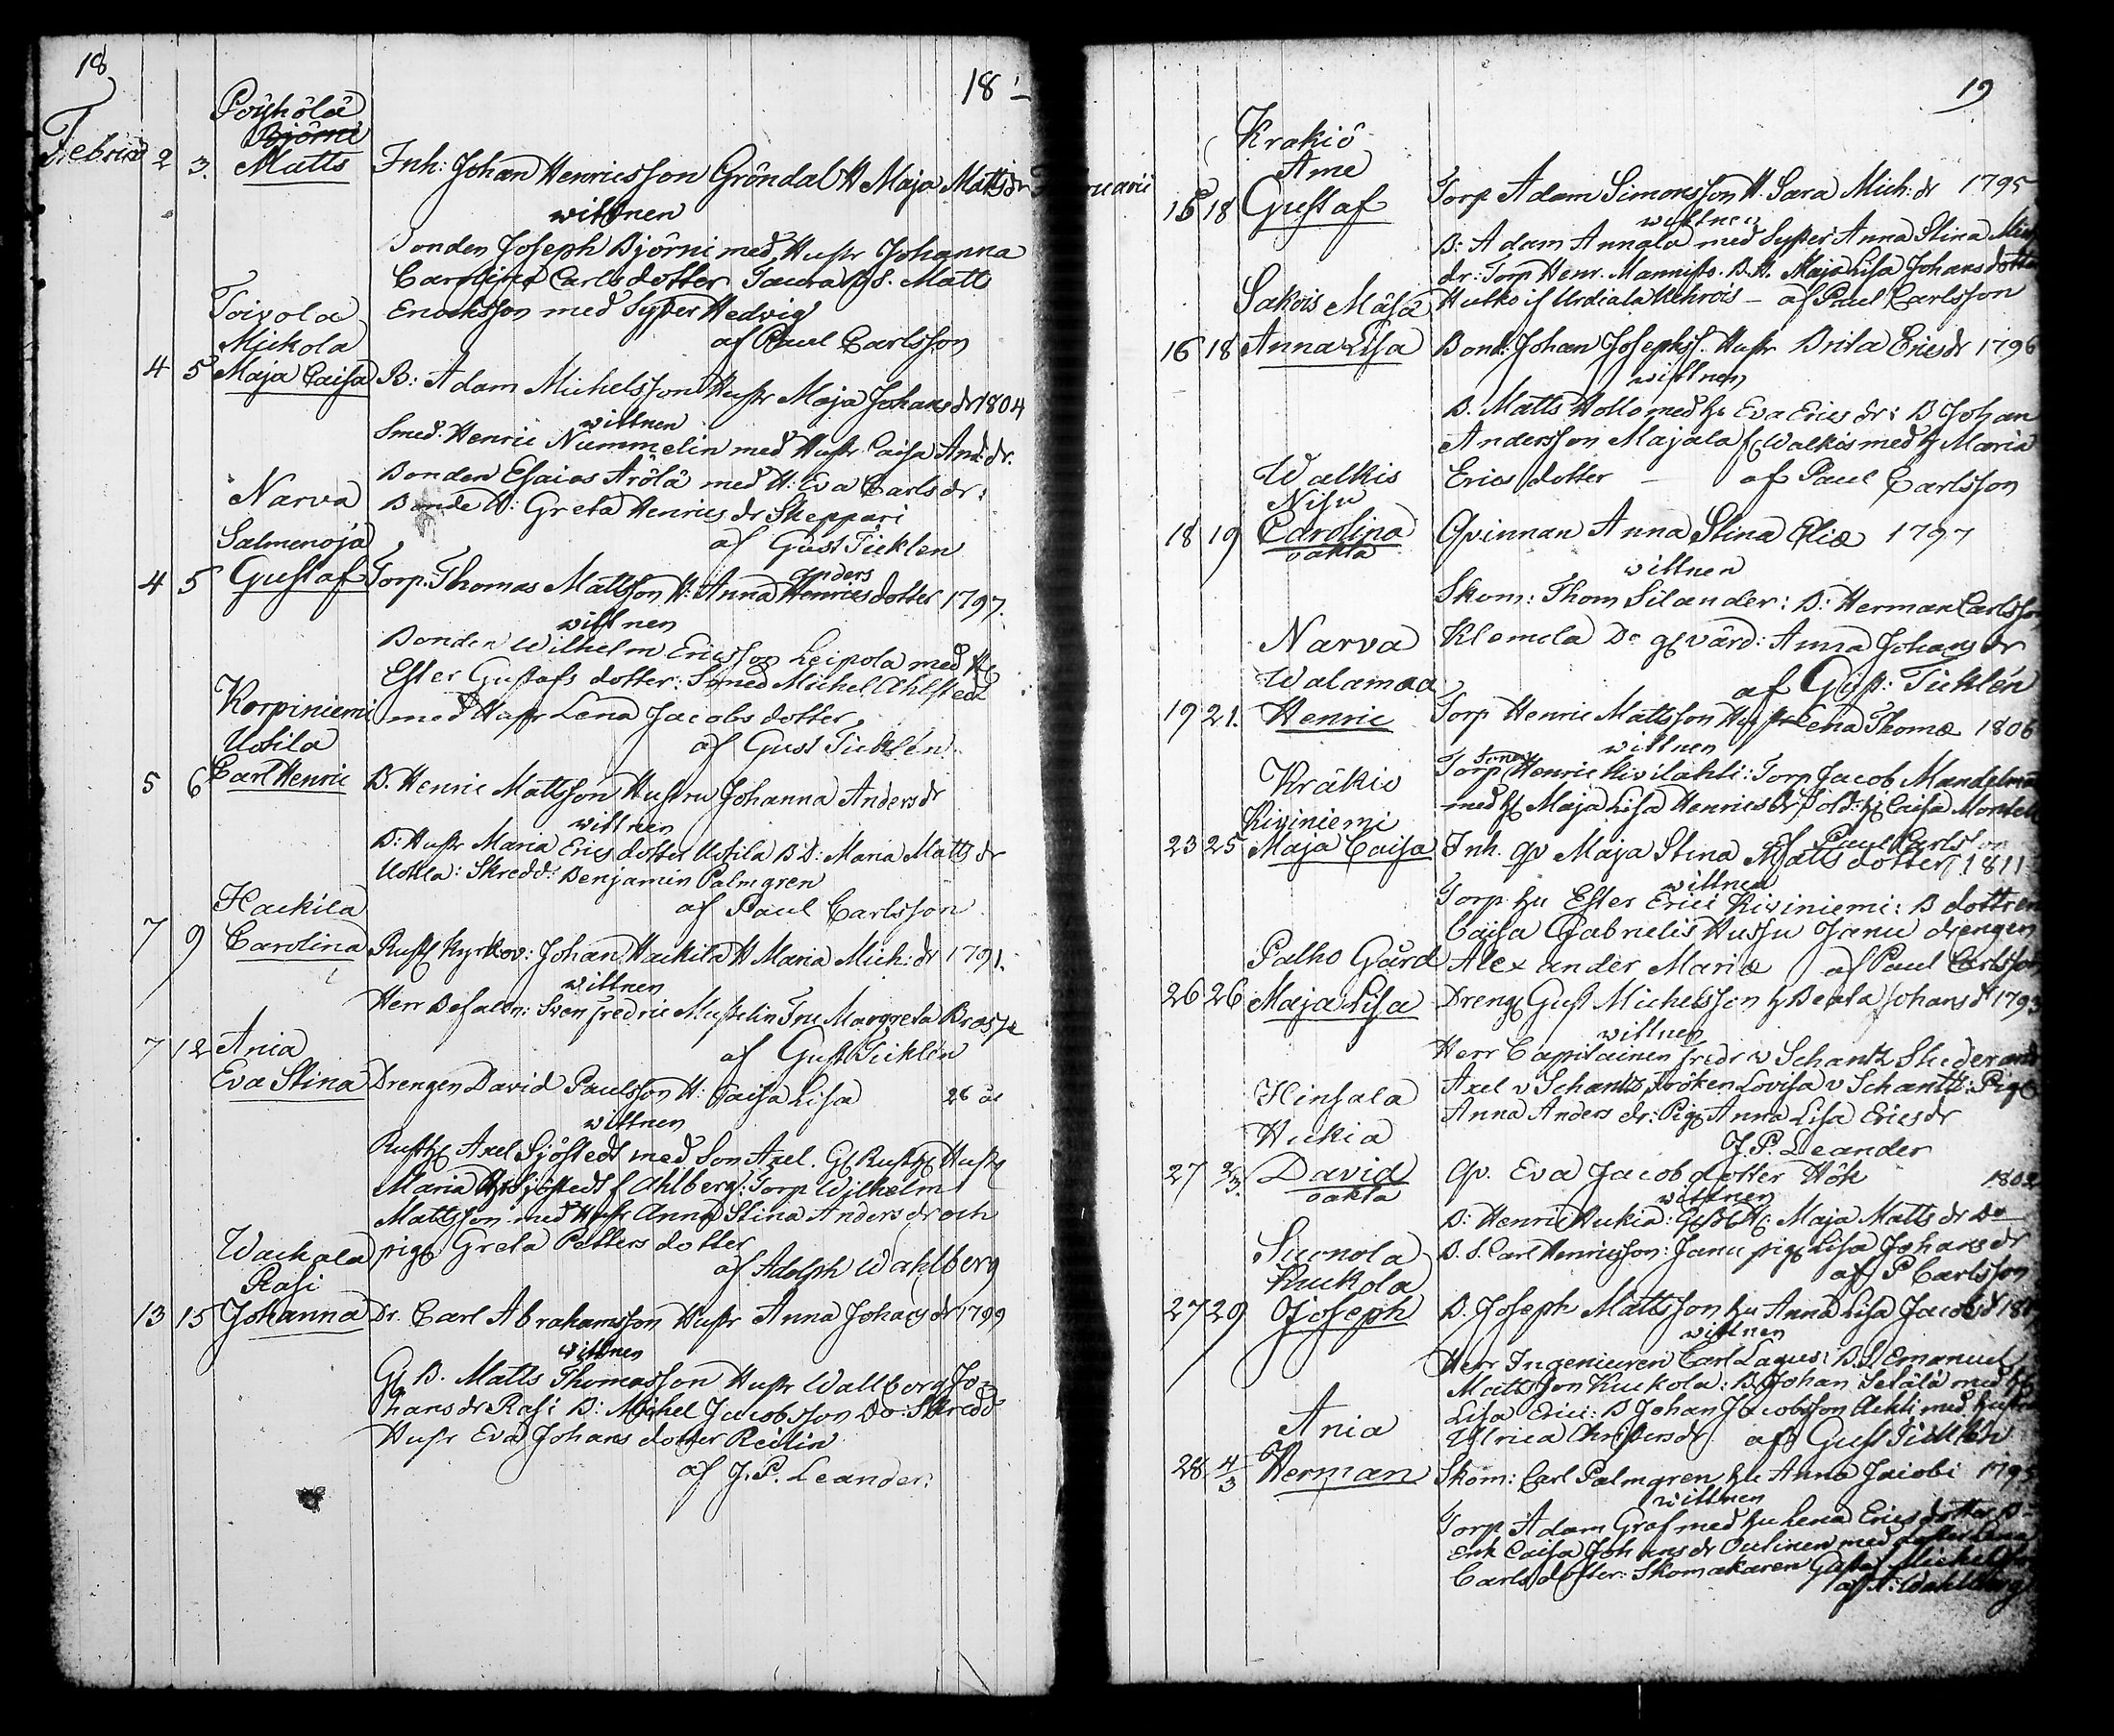 18
18
Pöyhölä
Björni
Februa 2 3. Matts Inh: Johan Henricsson Gröndal H Maja Mattsdr
wittnen
Bonden Joseph Björni med Hustr Johanna
Carolina Carlsdotter Matts
Ericksson med Syster Hedvig
af Paul Carlsson
Toivola
Mickola
4 5 Maja Caisa B: Adam Michelsson Hustr Maja Johansdr 1804
wittnen
Smed: Henric Nummelin med Hustr Caisa And: dr.
Bonden Esaias Arölä med H: Eva Carlsdr:
Bonde H: Greta Henrics dr Skeppari
af Gust Ticklen
Narva
Salmenoja
4 5 Gustaf Torp. Thomas Mattsson H: Anna Henricsdotter 1797.
Anders
wittnen
Bonden Wilhelm Ericsson Leipola med H
Ester Gustafs dotter: Smed Michel Ahlstedt
med Hustr Lena Jacobs dotter
af Gust Ticklén
Korpiniemi
Uotila
5 6 Carl Henric B. Henric Mattsson Hustru Johanna Andersdr
wittnen
B: Hustr Maria Erics dotter Uotila B D: Maria Matts dr
Uotila: Skredd: Benjamin Palmgren
af Paul Carlsson
Hackila
7 9 Carolina Rusth Kyrkov: Johan Hackila H Maria Mich: dr 1791.
wittnen
Herr Befalln: Sven Fredric Mustelin Fru Margreta
af Gust Ticklén
7 12 Ania
Eva Stina Drengen David Paulsson H: Caisa Lisa 26 år
wittnen
Rusth Axel Sjöstedt med Son Axel. Gl Rusth Hustr
Maria Sjöstedt f Ahlberg: Torp Wilhelm
Mattsson med Hustr Anna Stina Anders dr och
pig Greta Petters dotter
af Adolph Wahlberg
Wackala
Rasi
13 15 Johanna Dr. Carl Abrahamsson Hustr Anna Johans dr 1799
wittnen
Gl B. Matts Thomasson Hustr Wallborg Jo-
hans dr Rasi B: Michel Jacobsson Do: Skredd
Hustr Eva Johans dotter Reilin
af J. P. Leander:
19
Februarii
Krakiö
Ame
15 18 Gustaf Torp Adam Simonsson H. Sara Mich: dr 1795
wittnen
B: Adam Annala med Syster Anna Stina Mich
dr: Torp Henr. Mannists. B. H. Maja Lisa Johansdotter
Hutko if Urdiala – af Paul Carlsson
Sakois Mäsä
16 18 Anna Lisa Bond: Johan Josephss. Hustr Brita Ericsdr 1796
wittnen
B. Matts Hollo med h. Eva Erics dr: B Johan
Andersson Majala f Walkis med h Maria
Erics dotter – af Paul Carlsson
Walkis
Nisu
18 19 Carolina Qvinnan Anna Stina Eliæ 1797
oäkta
wittnen
Skom: Thom Silander: B: Herman Carlsson
Klemela Do gl värd: Anna Johans dr
af Gust: Ticklén
Narva
Walamaa
19 21. Henric Torp Henric Mattsson Hustr Lena Thomæ 1806
wittnen
Torp Henric Kivilahti: Torp Jacob Mandelin
med h Maja Lisa Henricsdr Sold: h Caisa Montell
af Paul Carlsson
Kräkiö
Kiviniemi
23 25 Maja Caisa Inh. qv Maja Stina Matts dotter 1811
wittnen
Torp hu Ester Erici Kiviniemi: B dottren
Caisa Gabrielis Hussu Janu drengen
Alexander Mariæ af Paul Carlsson
Palho Gård
26 26 Maja Lisa Dreng Gust Michelsson h Beata Johansdr 1793
wittnen
Herr Capitainen Fredr v Schantz Studerand
Axel v Schantz Fröken Lovisa v Schantz: Pig
Anna Anders dr: Pig Anna Lisa Ericsdr
J. P. Leander
Hinsala
Hukia
27 2/3. David Qv. Eva Jacobsdotter Hök 1802
oäkta
wittnen
B: Henric Hukia: H: Maja Matts dr Do
B. S. Carl Henricsson: Janu pig Lisa Johansdr
af P Carlsson
Suonola
Kuckola
27 29 Joseph B. Joseph Mattsson hu Anna Lisa Jacobsdr
wittnen
Herr Ingenieuren Carl Lagus: B. S. Emanuel
Mattsson Kuckola: B Johan Setälä med h
Lisa Erici: B Johan Jacobsson Uchti med hustr
Ulrica Christersdr af Gust Ticklén
Ania
28 4/3 Herman Skom: Carl Palmgren hu Anna Jacobi
wittnen
Torp Adam Graf med hu Lena Erics dotter B-
Enk Caisa Johansdr Outinen med dotter Lena
Carlsdotter: Skomakaren Gustaf Michelsson
af A: Wahlberg